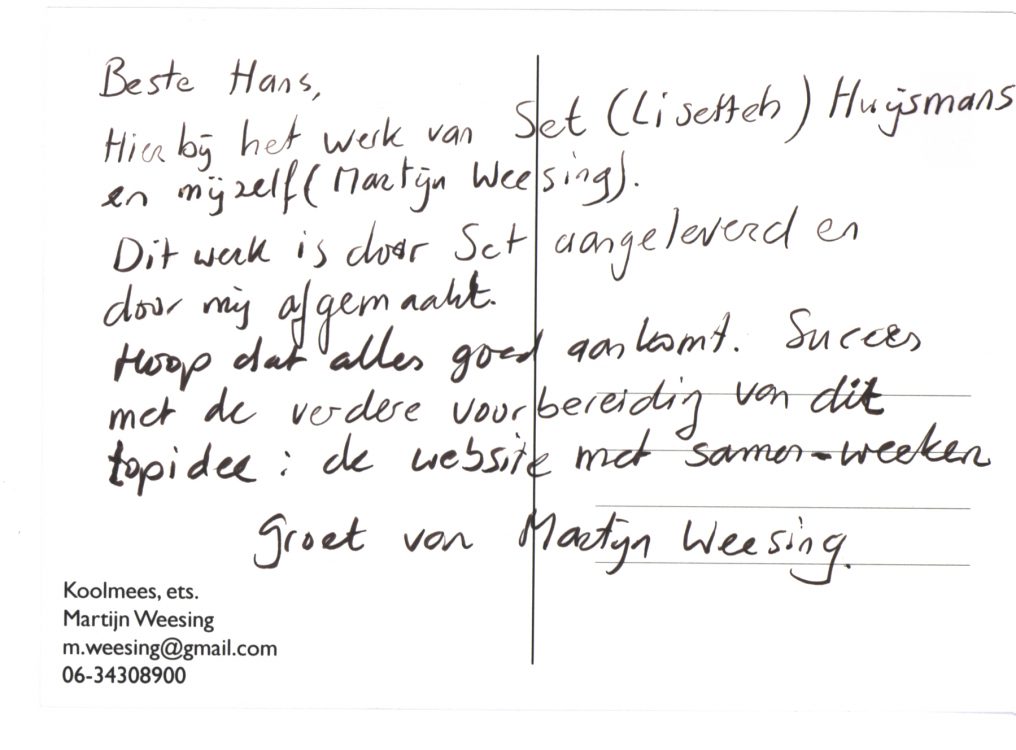 Beste Hans,
Hierbij het werk van Set (Lisetteh) Huijsmans
en mijzelf (Martijn Weesing).
Dit werk is door Set aangeleverd en
door mij afgemaakt.
Hoop dat alles goed aankomt. Succes
met de verdere voorbereiding van dit
topidee: de website met samen-weeken
Groet van Martijn Weesing.
Koolmees, ets.
Martijn Weesing
m.weesing@gmail.com
06-34308900